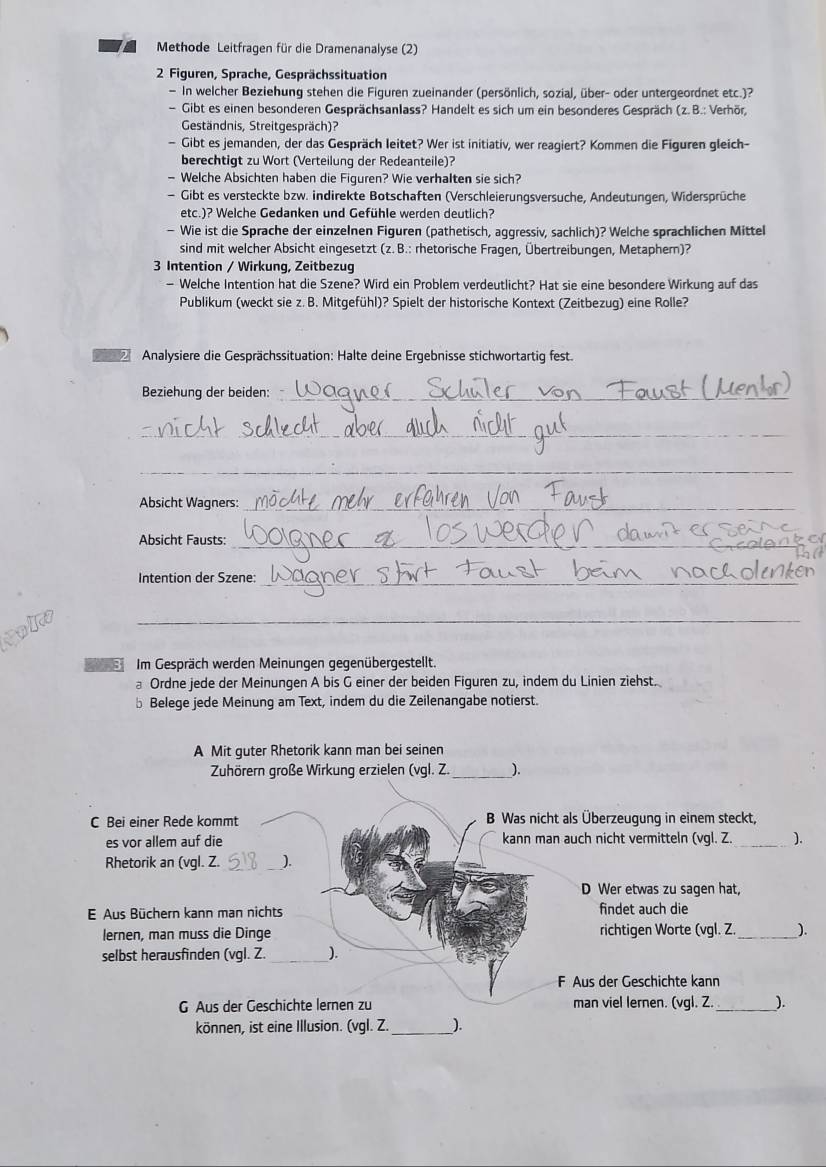 Methode Leitfragen für die Dramenanalyse (2)
2 Figuren, Sprache, Gesprächssituation
– In welcher Beziehung stehen die Figuren zueinander (persönlich, sozial, über- oder untergeordnet etc.)?
– Gibt es einen besonderen Gesprächsanlass? Handelt es sich um ein besonderes Gespräch (z. B.: Verhör,
Geständnis, Streitgespräch)?
– Gibt es jemanden, der das Gespräch leitet? Wer ist initiativ, wer reagiert? Kommen die Figuren gleich-
berechtigt zu Wort (Verteilung der Redeanteile)?
– Welche Absichten haben die Figuren? Wie verhalten sie sich?
– Gibt es versteckte bzw. indirekte Botschaften (Verschleierungsversuche, Andeutungen, Widersprüche
etc.)? Welche Gedanken und Gefühle werden deutlich?
– Wie ist die Sprache der einzelnen Figuren (pathetisch, aggressiv, sachlich)? Welche sprachlichen Mittel
sind mit welcher Absicht eingesetzt (z. B.: rhetorische Fragen, Übertreibungen, Metaphern)?
3 Intention / Wirkung, Zeitbezug
– Welche Intention hat die Szene? Wird ein Problem verdeutlicht? Hat sie eine besondere Wirkung auf das
Publikum (weckt sie z. B. Mitgefühl)? Spielt der historische Kontext (Zeitbezug) eine Rolle?
2 Analysiere die Gesprächssituation: Halte deine Ergebnisse stichwortartig fest.
Beziehung der beiden: - Wagner Schüler von Faust (Mentor)
- nicht schlecht aber auch nicht gut
Absicht Wagners: möchte mehr erfahren von Faust
Absicht Fausts: Wagner loswerden damit er seine
Intention der Szene: Wagner stört Faust beim nachdenken
3 Im Gespräch werden Meinungen gegenübergestellt.
a Ordne jede der Meinungen A bis G einer der beiden Figuren zu, indem du Linien ziehst.
b Belege jede Meinung am Text, indem du die Zeilenangabe notierst.
A Mit guter Rhetorik kann man bei seinen
Zuhörern große Wirkung erzielen (vgl. Z. ______).
C Bei einer Rede kommt
es vor allem auf die
Rhetorik an (vgl. Z. 518 __).
B Was nicht als Überzeugung in einem steckt,
kann man auch nicht vermitteln (vgl. Z. ______).
D Wer etwas zu sagen hat,
findet auch die
richtigen Worte (vgl. Z. ______).
E Aus Büchern kann man nichts
lernen, man muss die Dinge
selbst herausfinden (vgl. Z. ______).
F Aus der Geschichte kann
man viel lernen. (vgl. Z. ______).
G Aus der Geschichte lernen zu
können, ist eine Illusion. (vgl. Z. ______).